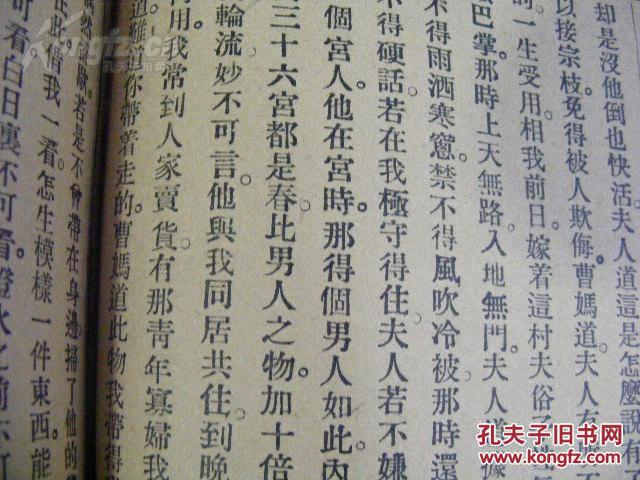 却是沒他倒也快活夫人道這是怎麼說有了
以接宗枝免得被人欺侮。曹媽道夫人有所不
的一生受用相我前日。嫁着這村夫俗子
巴掌。那時上天無路。入地無門。夫人
不得雨洒寒窻。禁不得風吹冷被。那時還
不得硬話。若在我極守得住。夫人若不嫌
個宮人。他在宮時。那得個男人如此內
三十六宮都是春。比男人之物。加十倍
輪流妙不可言。他與我同居共住。到晚
用我常到人家賣貨。有那青年寡婦我
道難道你帶着走的。曹媽道此物我帶得
若是不曾帶在身邊掃了他的
在此借我一看怎生模樣一件東西。能
可看白日裏不可看。燈火之前亦可
孔夫子旧书网
www.kongfz.com